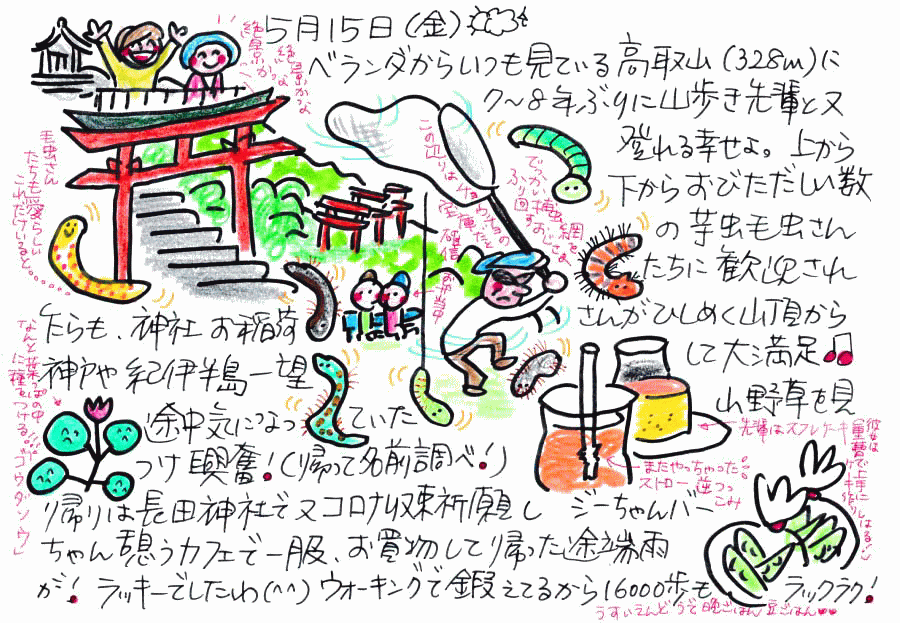 5月15日(金)
ベランダからいつも見ている高取山(328m)に
7〜8年ぶりに山歩き先輩と又
登れる幸せよ。上から
下からおびただしい数
の芋虫毛虫さん
たちに歓迎され
たらも、神社お稲荷さんがひしめく山頂から
神戸や紀伊半島一望して大満足
途中気になっていた山野草を見
つけ興奮!(帰って名前調べ!)
帰りは長田神社で又コロナ収束祈願し ジーちゃんバー
ちゃん憩うカフェで一服、お買物して帰った途端雨
が! ラッキーでしたわ(^^) ウォーキングで鍛えてるから16000歩も ラックラク!
絶景かな
絶景かな
毛虫さん
たちも愛らしい
これだけいると。。。
この辺りは
でっかい捕虫網を
ふり回すおじさん
お弁当中
なんと葉っぱの中
に種をつける!!!
先輩はスフレケーキ
またやっちゃった
ストロー逆つっこみ
うすいえんどうで晩ごはん豆ごはん♥♥